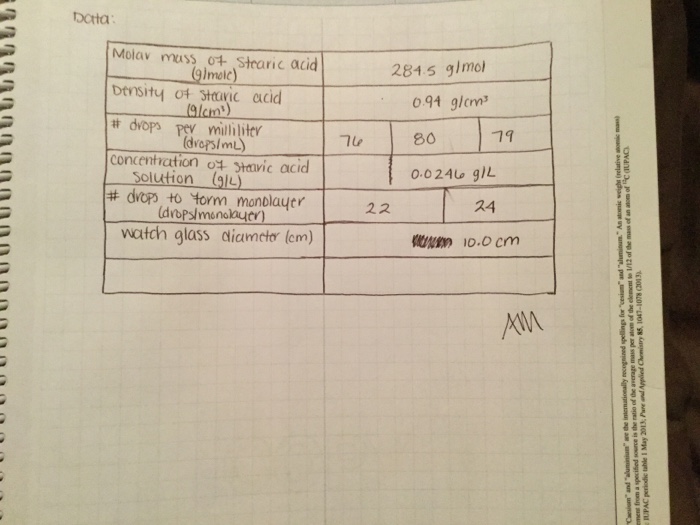 Data:
Molar mass of Stearic acid
(g/mole)
284.5 g/mol
Density of Stearic acid
(g/cm³)
0.94 g/cm³
# drops per milliliter
(drops/mL)
76 80 79
concentration of stearic acid
solution (g/L)
0.0246 g/L
# drops to form monolayer
(drops/monolayer)
22 24
watch glass diameter (cm)
10.0 cm
AM
"Cesium" and "aluminum" are the internationally recognized spellings for "cesium" and "aluminum." An atomic weight (relative atomic mass)
ment from a specified source is the ratio of the average mass per atom of the element to 1/12 of the mass of an atom of ¹²C (IUPAC).
IUPAC periodic table 1 May 2013; Pure and Applied Chemistry 85, 1047-1078 (2013).